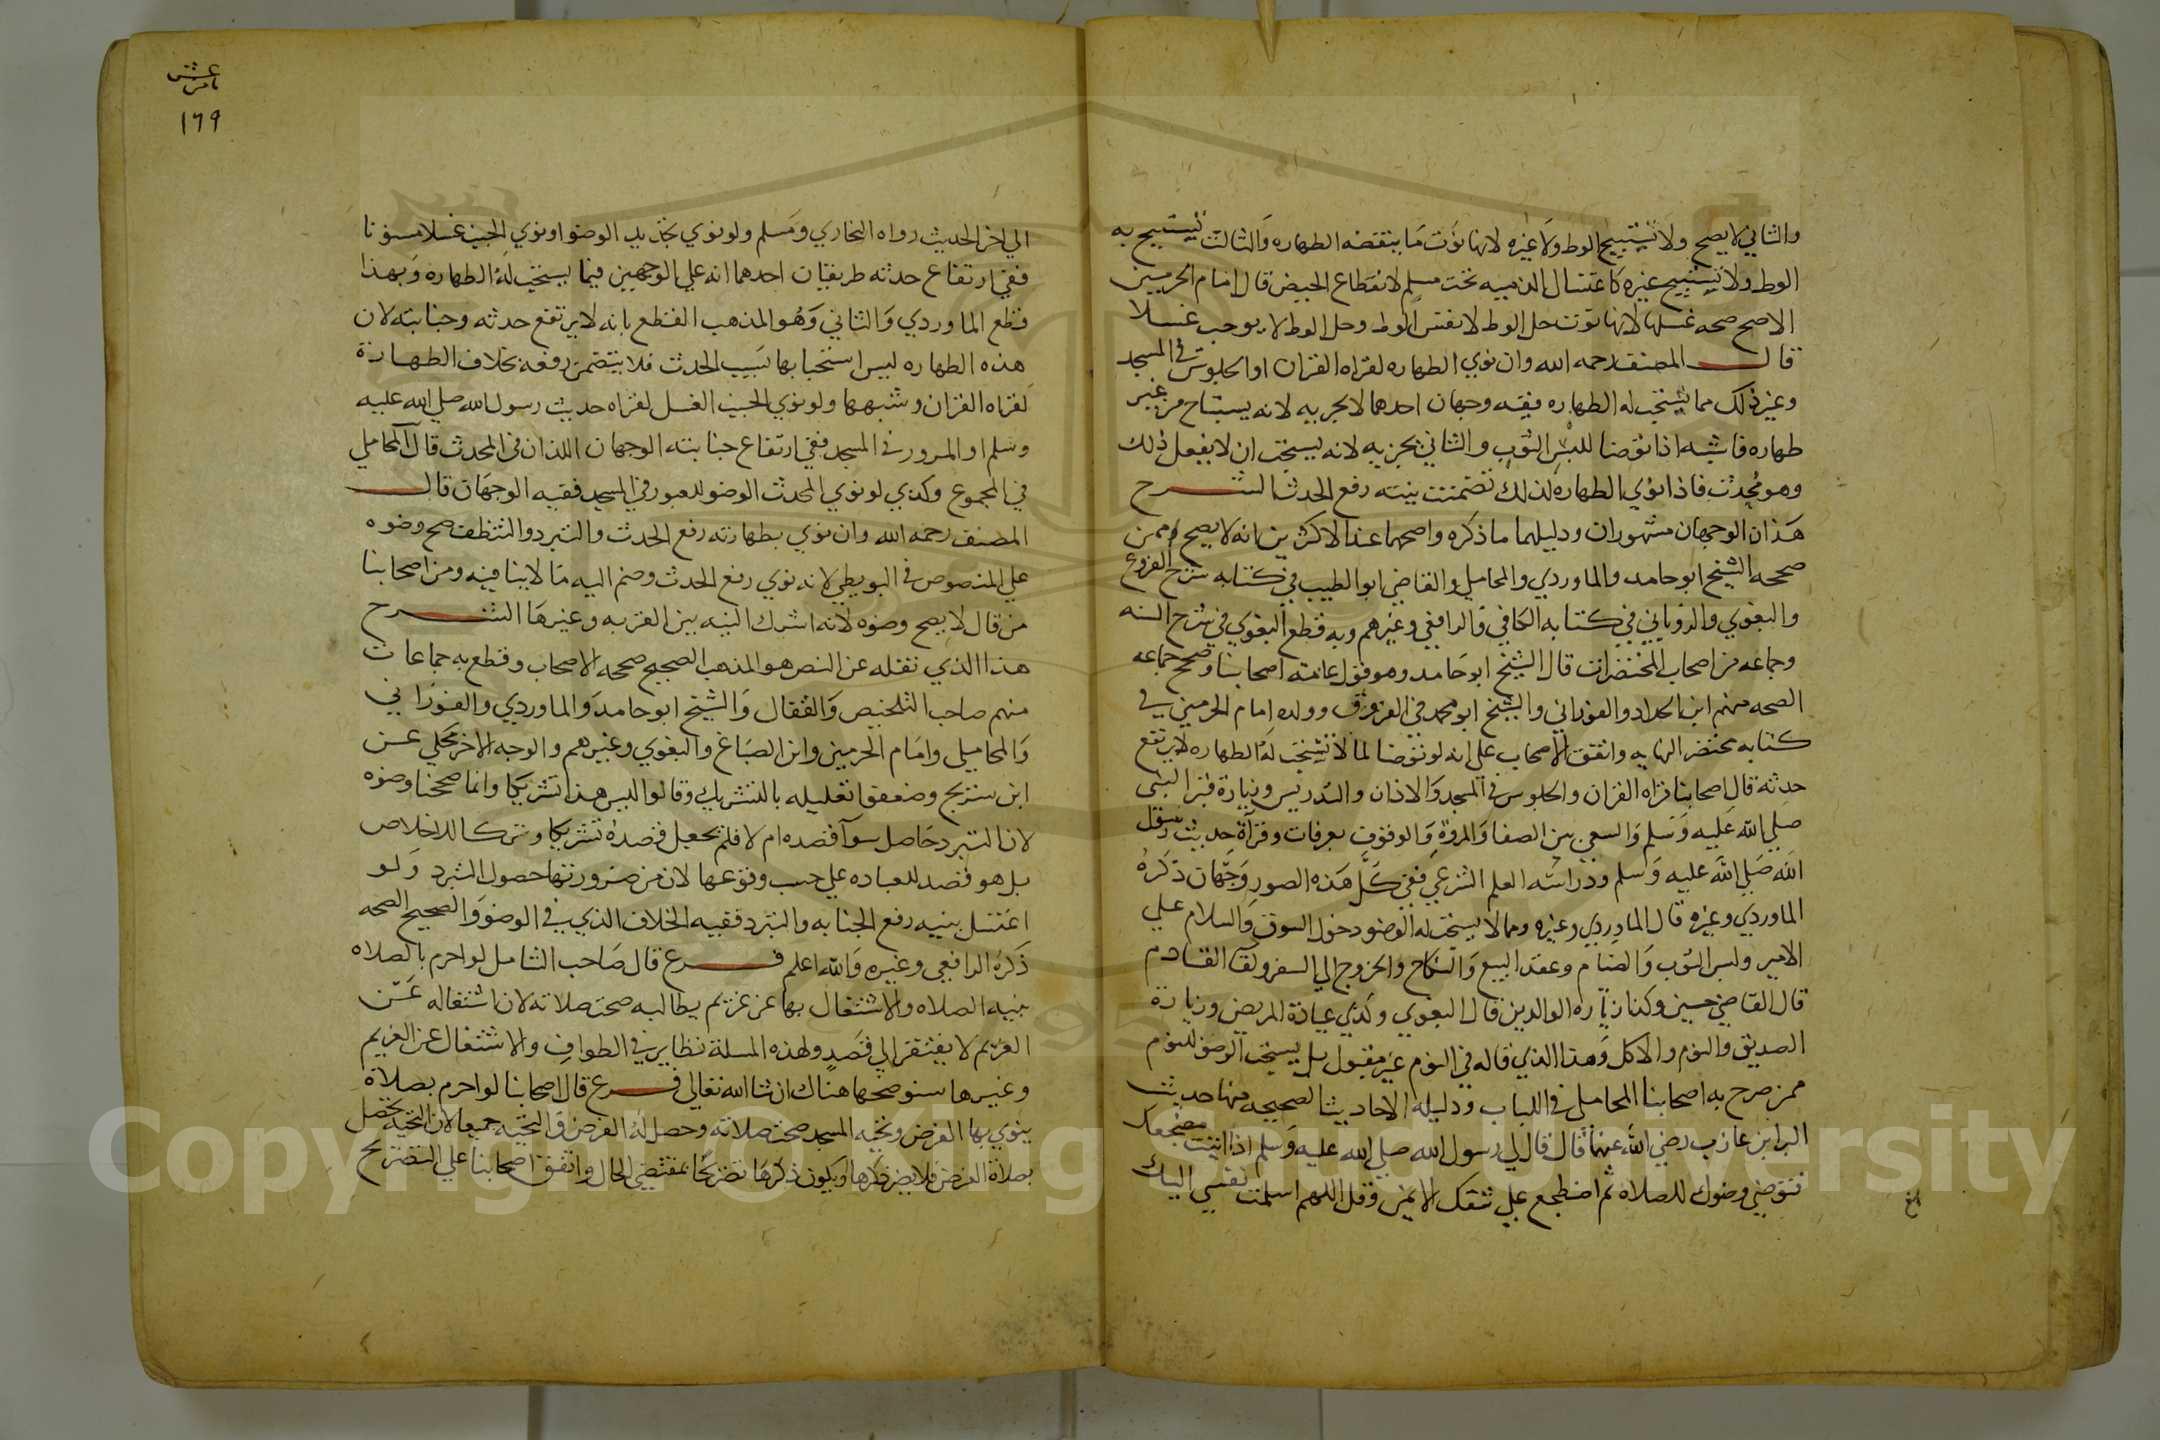 والثاني لا يصح ولا تستبيح الوط ولا غيره لانها نوت ما ينقضه الطهاره والثالث تستبيح به
الوط ولا تستبيح غيره كاغتسال الذميه تحت مسلم لانقطاع الحيض قال امام الحرمين
الاصح صحه غسلها لانها نوت حل الوط لا نفس الوط وحل الوط لا يوجب غسلا
قال المصنف رحمه الله وان نوي الطهاره لقراه القران او الجلوس في المسجد
وغير ذلك مما يستحب له الطهاره ففيه وجهان احدهما لا يجزيه لانه يستباح من غير
طهاره فاشبه اذا توضا للبس الثوب والثاني يجزيه لانه يستحب ان لا يفعل ذلك
وهو محدث فاذا نوي الطهاره لذلك تضمنت نيته رفع الحدث الشرح
هذان الوجهان مشهوران ودليلهما ما ذكره واصحهما عند الاكثرين انه لا يصح وممن
صححه الشيخ ابو حامد والماوردي والمحاملي والقاضي ابو الطيب في كتابه شرح الفروع
والبغوي والروياني في كتابه الكافي والرافعي وغيرهم وبه قطع البغوي في شرح السنه
وجماعه من اصحاب المختصرات قال الشيخ ابو حامد وهو قول عامه اصحابنا وصحح جماعه
الصحه منهم ابن الحداد والفوراني والشيخ ابو محمد في الفروق وولده امام الحرمين في
كتابه مختصر النهايه واتفق الاصحاب علي انه لو توضا لما لا تستحب له الطهاره لا يرتفع
حدثه قال اصحابنا قراه القران والجلوس في المسجد والاذان والتدريس وزيارة قبر النبي
صلي الله عليه وسلم والسعي بين الصفا والمروة والوقوف بعرفات وقراة حديث رسول
الله صلي الله عليه وسلم ودراسه العلم الشرعي ففي كل هذه الصور وجهان ذكره
الماوردي وغيره قال الماوردي وغيره ومما لا يستحب له الوضو دخول السوق والسلام علي
الامير ولبس الثوب والصيام وعقد البيع والنكاح والخروج الي السفر ولقا القادم
قال القاضي حسين وكذا زياره الوالدين قال البغوي وكذي عيادة المريض وزيارة
الصديق والنوم والاكل وهذا الذي قاله في النوم غير مقبول بل يستحب الوضو للنوم
ممن صرح به اصحابنا المحاملي في اللباب ودليله الاحاديث الصحيحه منها حديث
البرا بن عازب رضي الله عنهما قال قال لي رسول الله صلي الله عليه وسلم اذا اتيت مضجعك
فتوضي وضوك للصلاه ثم اضطجع علي شقك الايمن وقل اللهم اسلمت نفسي اليك
عشر
ثامن
١٦٩
الي اخر الحديث رواه البخاري ومسلم ولو نوي تجديد الوضو او نوي الجنب غسلا مسنونا
ففي ارتفاع حدثه طريقان احدهما انه علي الوجهين فيما يستحب له الطهاره وبهذا
قطع الماوردي والثاني وهو المذهب القطع بانه لا يرتفع حدثه وجنابته لان
هذه الطهاره ليس استحبابها بسبب الحدث فلا يتضمن رفعه بخلاف الطهارة
لقراه القران وشبهها ولو نوي الجنب الغسل لقراه حديث رسول الله صلي الله عليه
وسلم او المرور في المسجد ففي ارتفاع جنابته الوجهان اللذان في المحدث قال المحاملي
في المجموع وكذي لو نوي المحدث الوضو للعبور في المسجد ففيه الوجهان قال
المصنف رحمه الله وان نوي بطهارته رفع الحدث والتبرد والتنظف صح وضوه
علي المنصوص في البويطي لانه نوي رفع الحدث وضم اليه ما لا ينافيه ومن اصحابنا
من قال لا يصح وضوه لانه اشرك النيه بين القربه وغيرها الشرح
هذا الذي نقله عن النص هو المذهب الصحيح صححه الاصحاب وقطع به جماعات
منهم صاحب التلخيص والقفال والشيخ ابو حامد والماوردي والفوراني
والمحاملي وامام الحرمين وابن الصباغ والبغوي وغيرهم والوجه الاخر محكي عن
ابن سريج وضعفوا تعليله بالتشريك وقالوا ليس هذا تشريكا وانما صححنا وضوه
لان التبرد حاصل سوآ قصده ام لا فلم يجعل قصده تشريكا وتركا للاخلاص
بل هو قصد للعباده علي حسب وقوعها لان من ضرورتها حصول التبرد ولو
اغتسل بنيه رفع الجنابه والتبرد ففيه الخلاف الذي في الوضو والصحيح الصحه
ذكره الرافعي وغيره والله اعلم فرع قال صاحب الشامل لو احرم بالصلاه
بنيه الصلاه والاشتغال بها عن غريم يطالبه صحت صلاته لان اشتغاله عن
الغريم لا يفتقر الي قصد ولهذه المسلة نظاير في الطواف والاشتغال عن الغريم
وغيرها سنوضحها هناك ان شا الله تعالي فرع قال اصحابنا لو احرم بصلاة
ينوي بها الفرض وتحيه المسجد صحت صلاته وحصل له الفرض والتحيه جميعا لان التحيه تحصل
بصلاة الفرض فلا يضر ذكرها ويكون ذكرها تصريحا بمقتضي الحال واتفق اصحابنا علي التصريح
Copyright © King Saud University